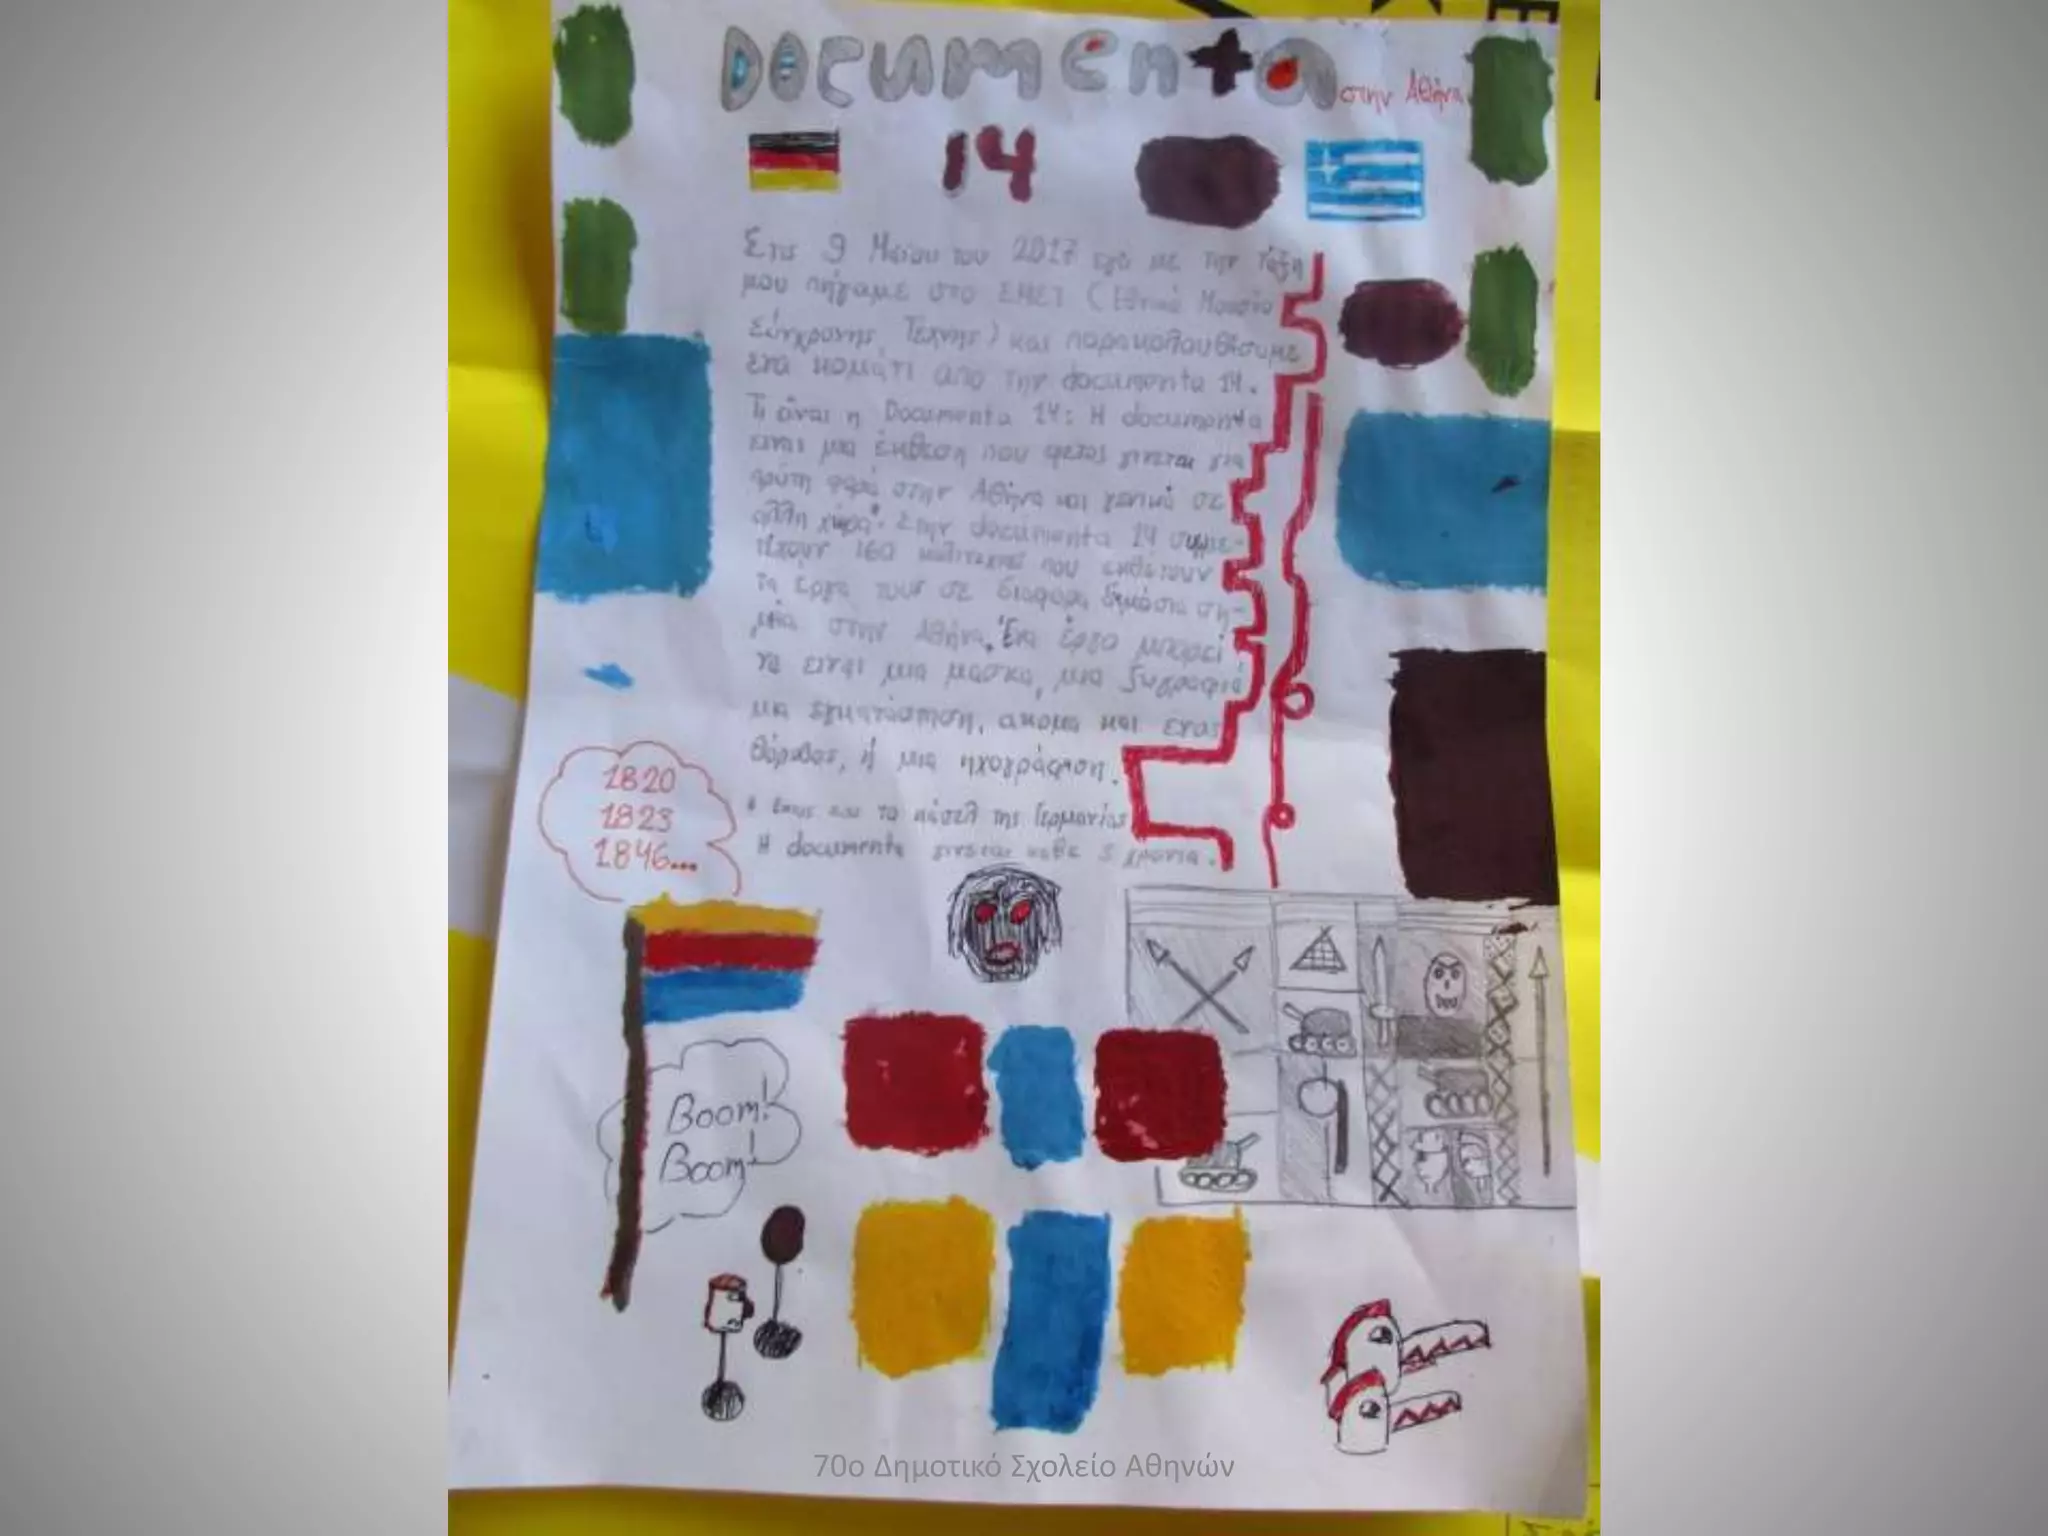 Documenta στην Αθήνα
14
Στις 9 Μαΐου του 2017 εγώ με την τάξη
μου πήγαμε στο ΕΜΣΤ (Εθνικό Μουσείο
Σύγχρονης Τέχνης) και παρακολουθίσυμε
ένα κομάτι απο την documenta 14.
Τι είναι η Documenta 14: Η documenta
ειναι μια έκθεση που φετος γινεται για
πρώτη φορά στην Αθήνα και γενικά σε
αλλη χώρα*. Στην documenta 14 συμμε-
τέχουν 160 καλιτεχνες που εκθέτουν
τα έργα τους σε διαφορα δημόσια ση-
μεία στην Αθήνα. Ένα έργο μπορεί
να ειναι μια μασκα, μια ζωγραφιά,
μια εγκατάσταση, ακομα και ενας
θόρυβος, ή μια ηχογράφιση.
το κάσελ της Γερμανίας
Η documenta γινεται καθε 5 χρονια.
1820
1823
1846...
Boom!
Boom!
70ο Δημοτικό Σχολείο Αθηνών